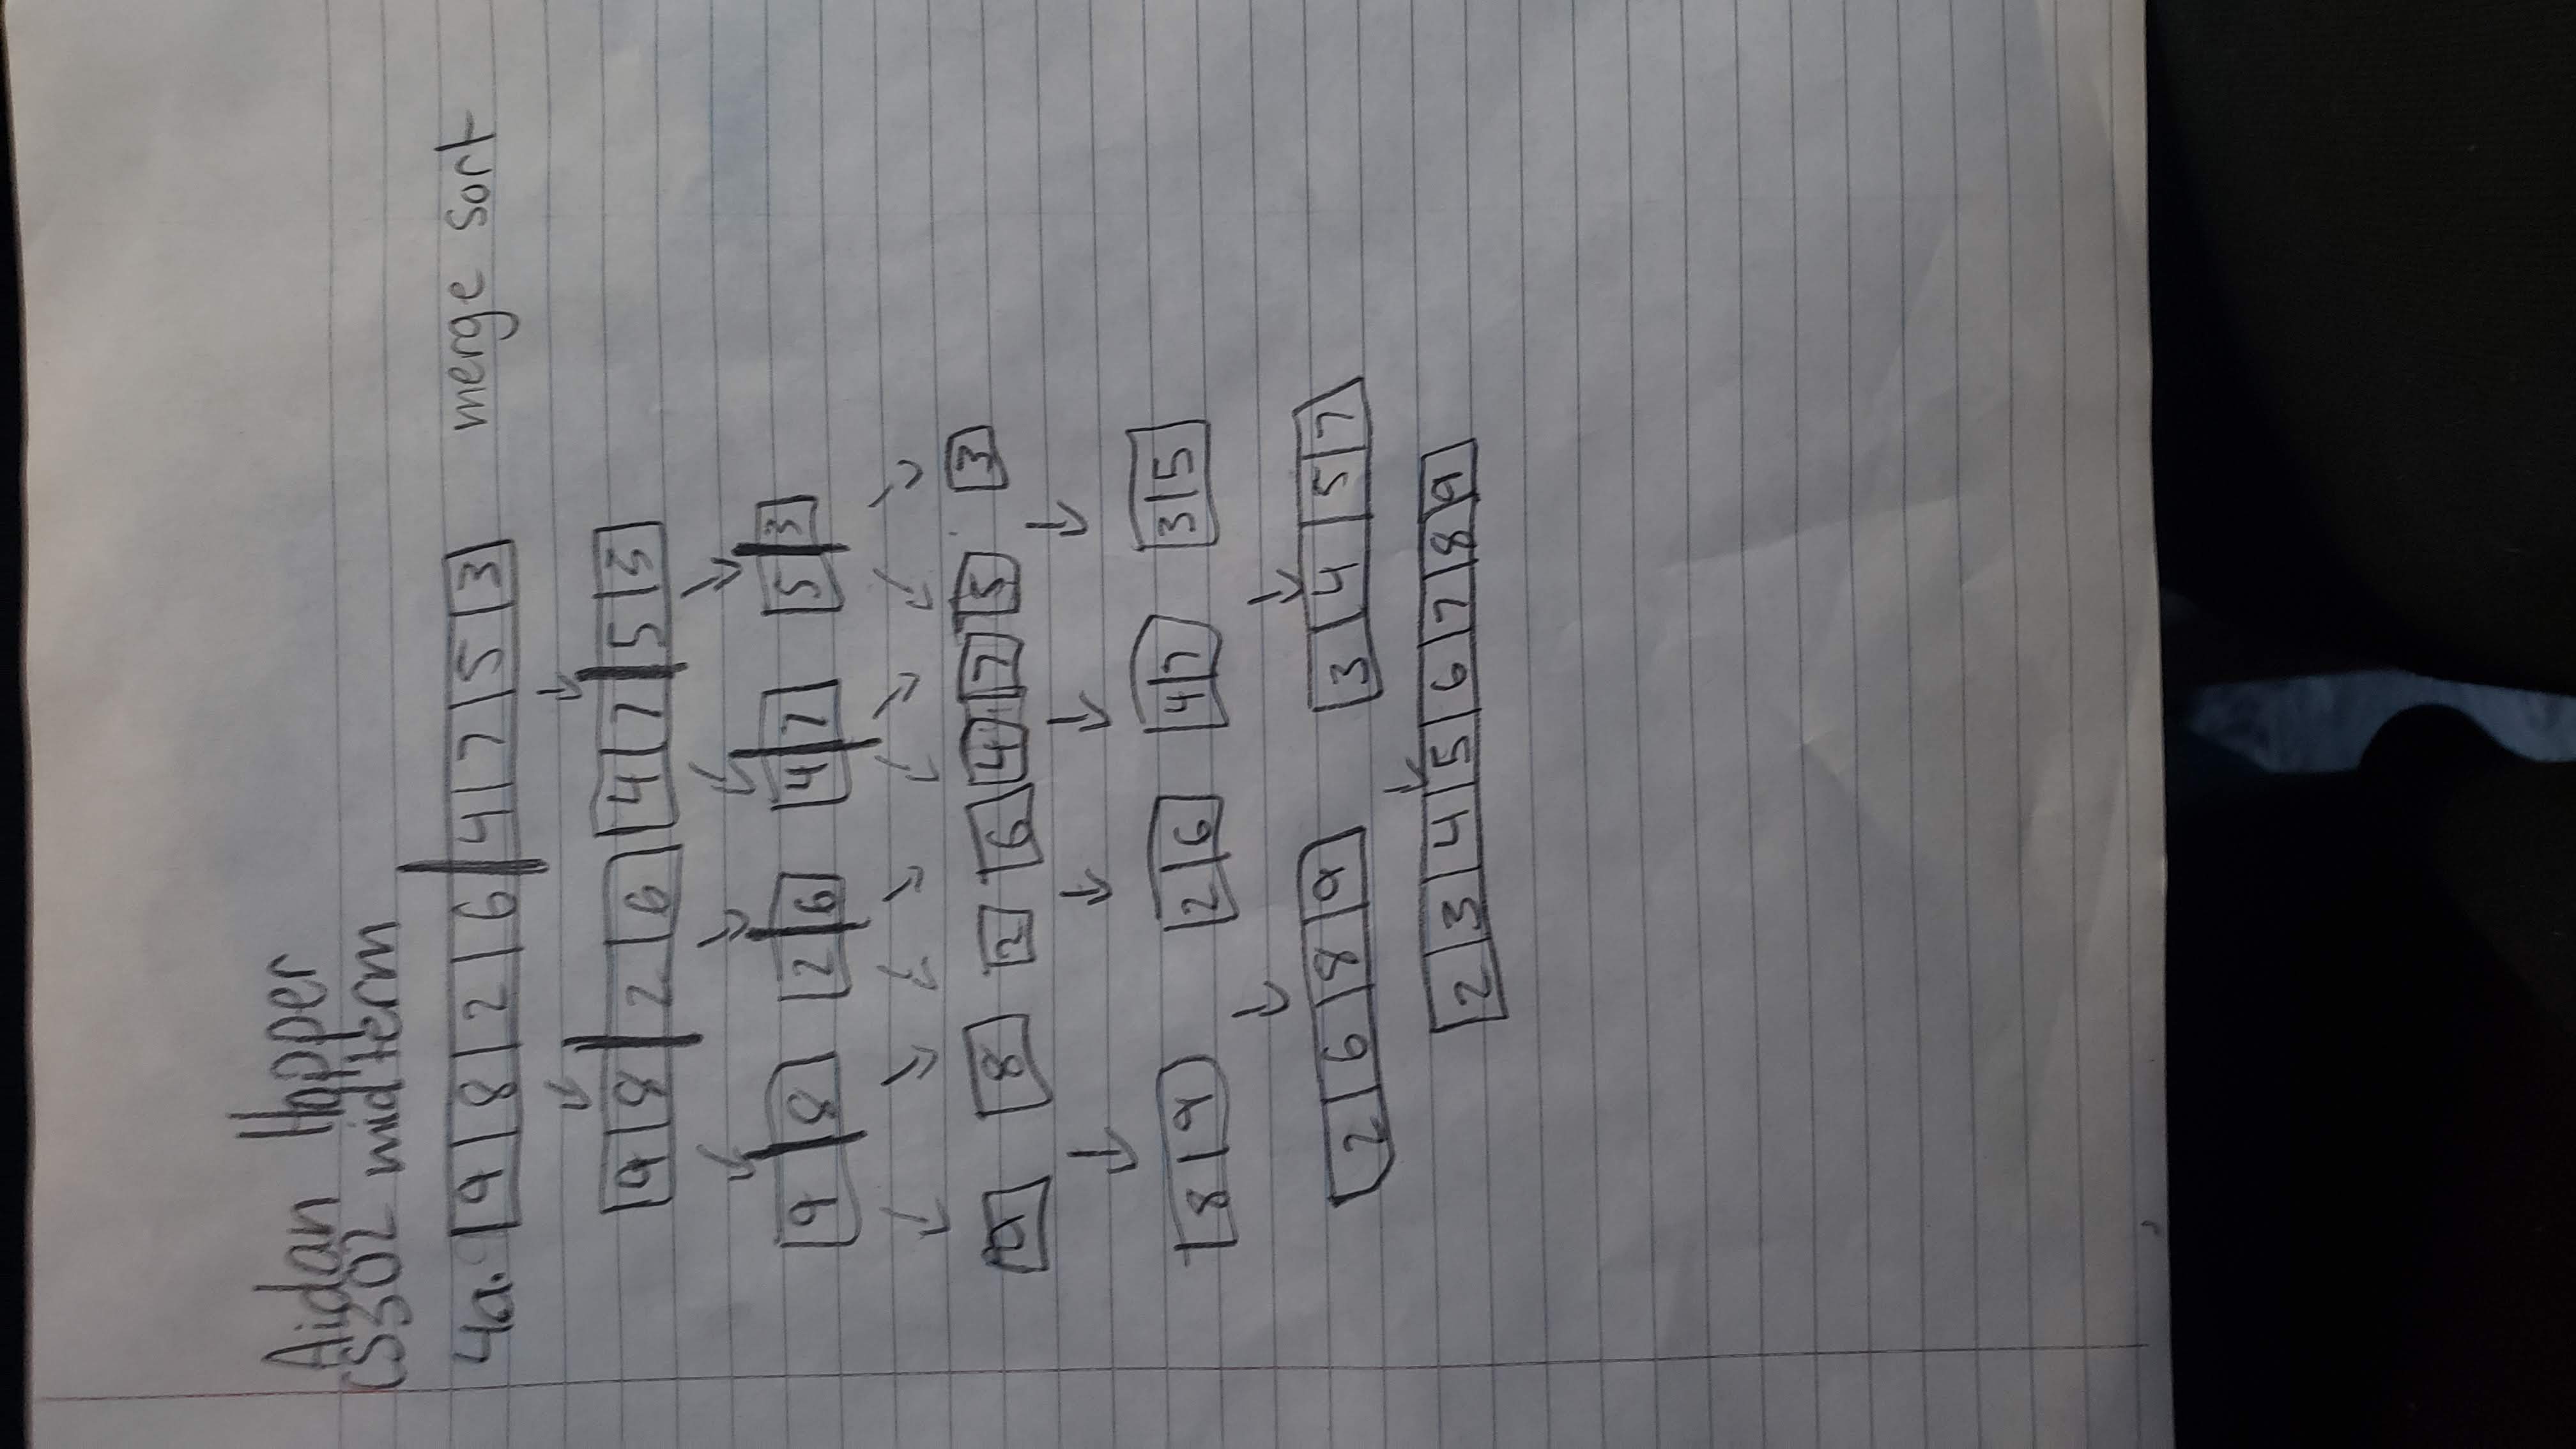 Aidan Hopper
CS302 midterm
4a. 9 8 2 6 4 7 5 3 merge sort
9 8 2 6 4 7 5 3
9 8 2 6 4 7 5 3
9 8 2 6 4 7 5 3
8 9 2 6 4 7 3 5
2 6 8 9 3 4 5 7
2 3 4 5 6 7 8 9